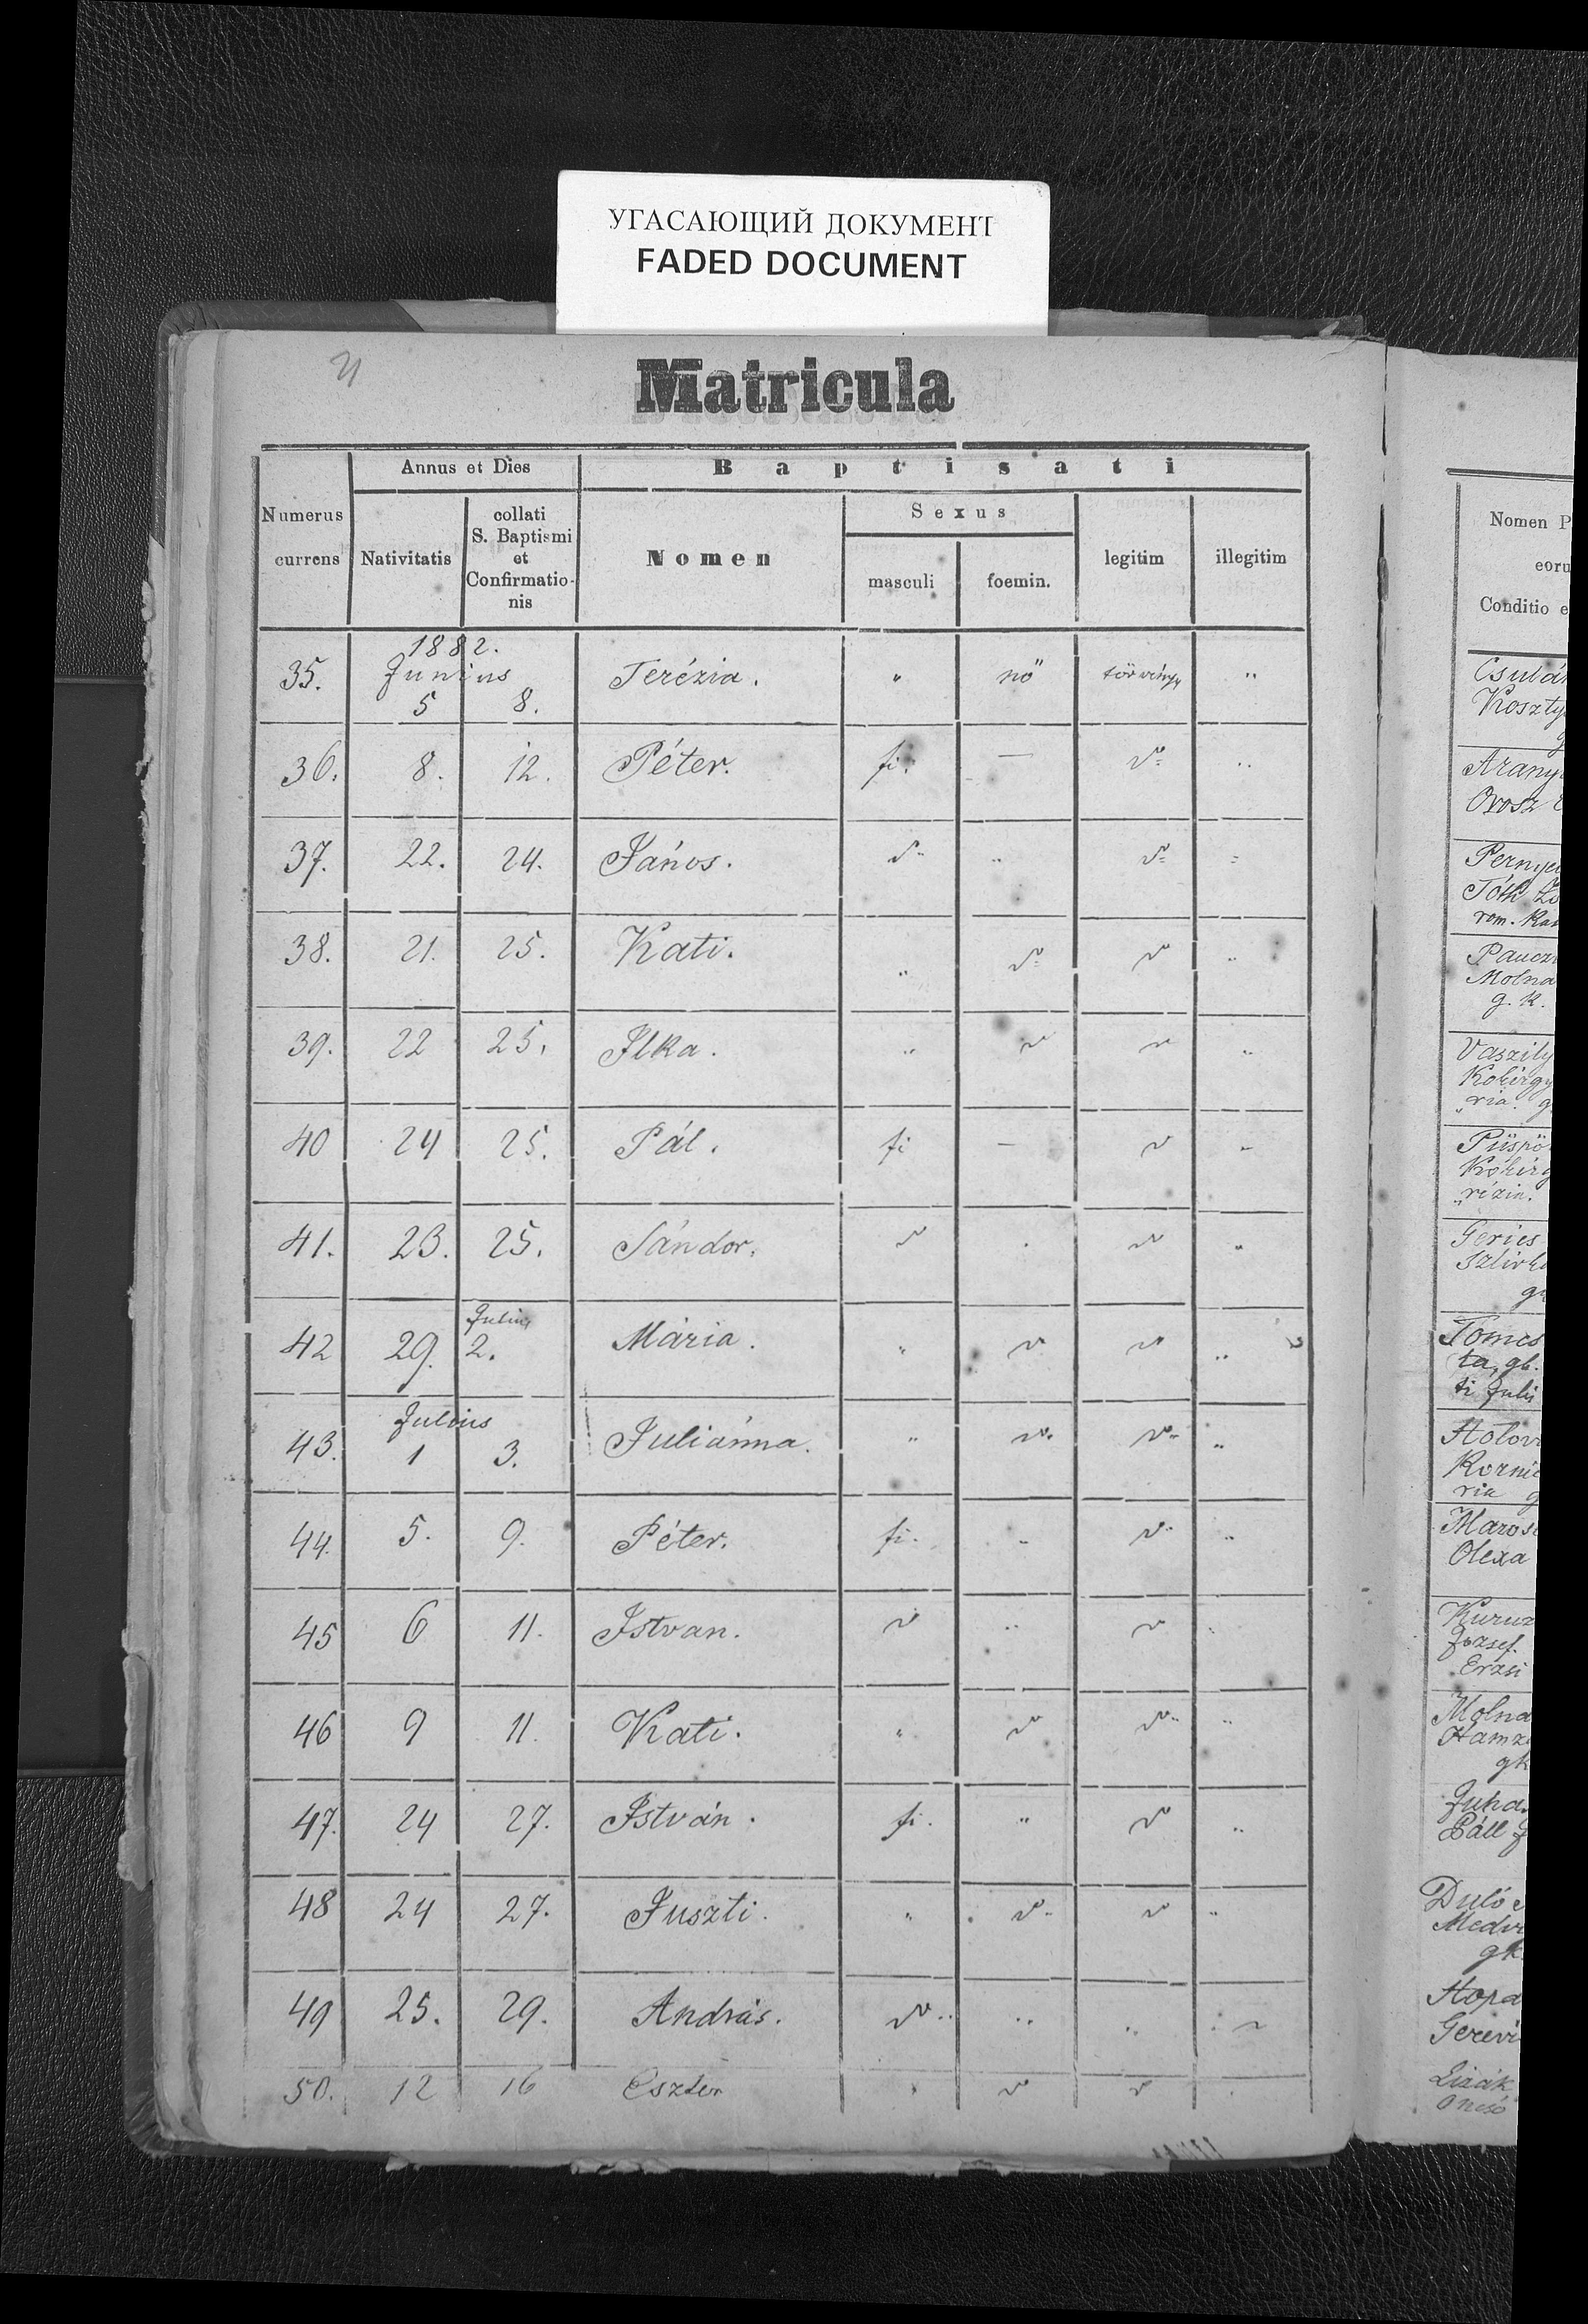 УГАСАЮЩИЙ ДОКУМЕНТ
FADED DOCUMENT
Matricula
Numerus currens | Annus et Dies | Baptisati
Nativitatis | collati S. Baptismi et Confirmationis | Nomen | Sexus | legitim | illegitim
masculi | foemin.
1882.
Junius
35. 5 8. Terézia. " nő törvény „
36. 8. 12. Péter. fi. —
37. 22. 24. János.
38. 21. 25. Kati.
39. 22 25. Ilka.
40 24 25. Pál. fi —
41. 23. 25. Sándor.
Julius
42 29. 2. Mária.
Julius
43. 1 3. Juliánna.
44. 5. 9. Péter. fi.
45 6 11. Istvan.
46 9 11. Kati.
47. 24 27. István. fi.
48 24 27. Juszti.
49 25. 29. András.
50. 12 16 Eszter
Nomen P
eoru
Conditio e
Csubá
Koszty
g
Arany
Orosz
Pernye
Tóth
rom. Kat
Paucz
Molna
g. k.
Vaszily
Kohirgy
ria. g
Püspö
Kohirg
rézia.
Gerics
Tomcs
ta, gk.
ti Juli
Holov
Kornic
ria g
Maros
Olexa
Kuruz
József.
Erzsi
Molna
Hamz
gk
Juha
Páll J
Duló
Medv
gk
Hopa
Gerevi
Lizák